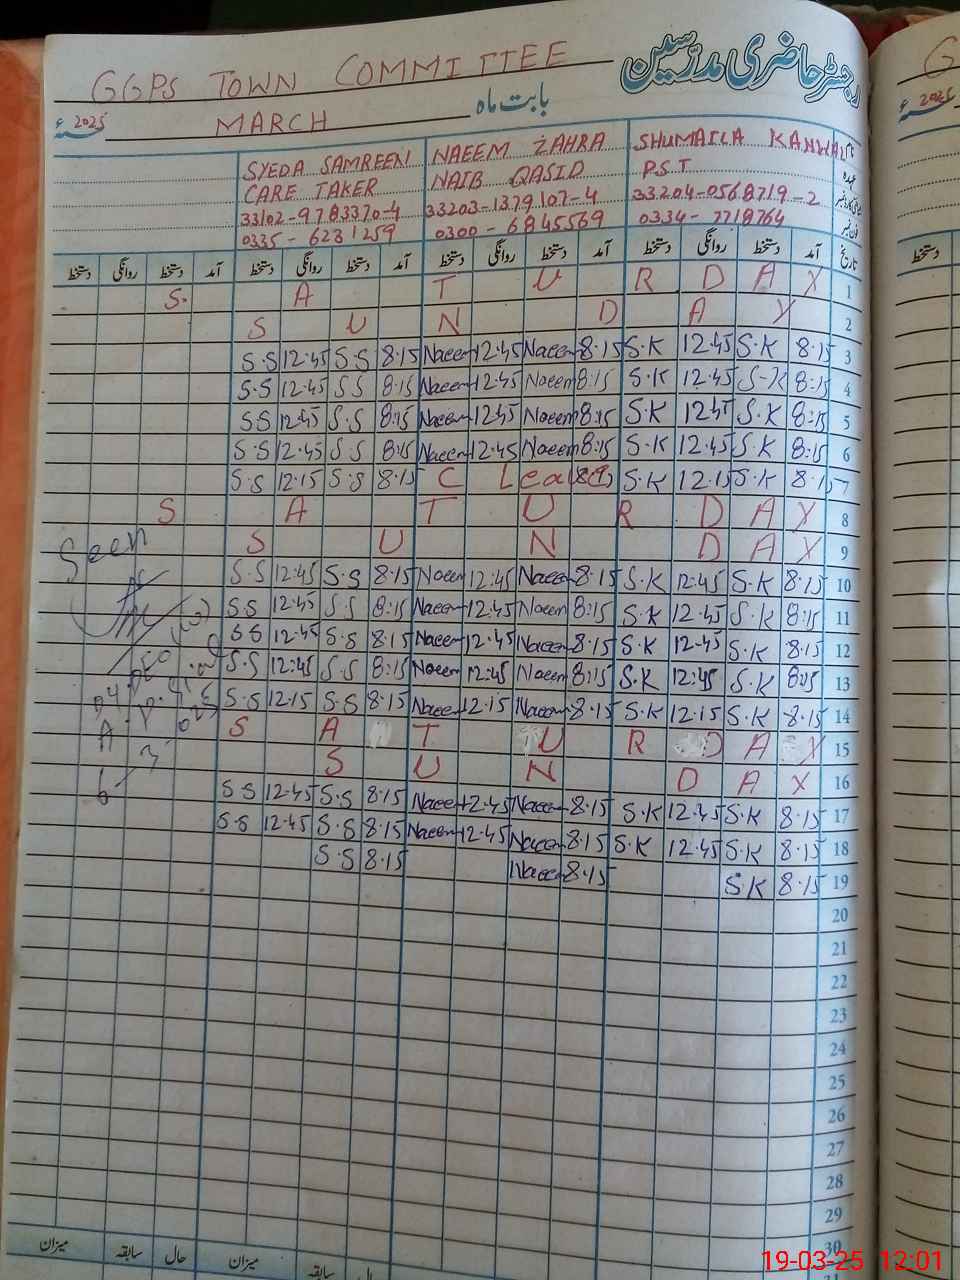 رجسٹر حاضری مدرسین
GGPS TOWN COMMITTEE
بابت ماہ MARCH 2025ء
SYEDA SAMREEN NAEEM ZAHRA SHUMAILA KANWAL نام
CARE TAKER NAIB QASID PST عہدہ
33102-9783370-4 33203-1379107-4 33204-0568719-2
0335-6231259 0300-6845569 0334-7718764 فون نمبر
دستخط روانگی دستخط آمد دستخط روانگی دستخط آمد دستخط روانگی دستخط آمد دستخط روانگی دستخط آمد تاریخ
S. A T U R D A Y 1
S U N D A Y 2
S.S 12.45 S.S 8.15 Naeem 12.45 Naeem 8.15 S.K 12.45 S.K 8.15 3
S.S 12.45 S.S 8:15 Naeem 12.45 Naeem 8:15 S.K 12.45 S.K 8:15 4
S.S 12.45 S.S 8:15 Naeem 12.45 Naeem 8:15 S.K 12.45 S.K 8:15 5
S.S 12.45 S.S 8:15 Naeem 12.45 Naeem 8:15 S.K 12.45 S.K 8:15 6
S.S 12.15 S.S 8.15 C Leave S.K 12.15 S.K 8.15 7
S A T U R D A Y 8
S U N D A Y 9
Seen
S.S 12:45 S.S 8.15 Naeem 12:45 Naeem 8.15 S.K 12.45 S.K 8:15 10
S.S 12.45 S.S 8:15 Naeem 12.45 Naeem 8:15 S.K 12.45 S.K 8:15 11
S.S 12.45 S.S 8.15 Naeem 12.45 Naeem 8.15 S.K 12.45 S.K 8.15 12
S.S 12:45 S.S 8:15 Naeem 12:45 Naeem 8:15 S.K 12:45 S.K 8:15 13
S.S 12.15 S.S 8.15 Naeem 12.15 Naeem 8.15 S.K 12.15 S.K 8.15 14
S A T U R D A Y 15
S U N D A Y 16
S.S 12.45 S.S 8.15 Naeem 12.45 Naeem 8.15 S.K 12.45 S.K 8.15 17
S.S 12.45 S.S 8.15 Naeem 12.45 Naeem 8.15 S.K 12.45 S.K 8.15 18
S.S 8.15 Naeem 8.15 S.K 8.15 19
20
21
22
23
24
25
26
27
28
29
30
میزان سابقہ حال میزان سابقہ
19-03-25 12:01
2025ء
دستخط